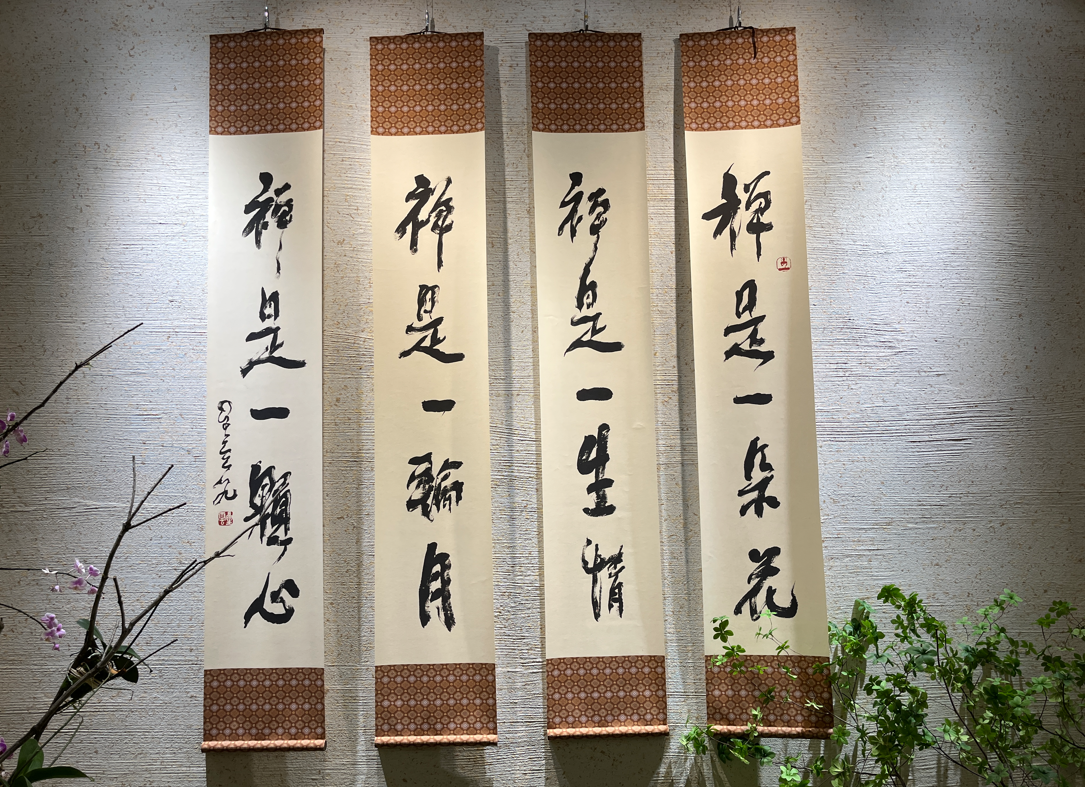 禅是一朵花
禅是一生情
禅是一輪月
禅是一顆心